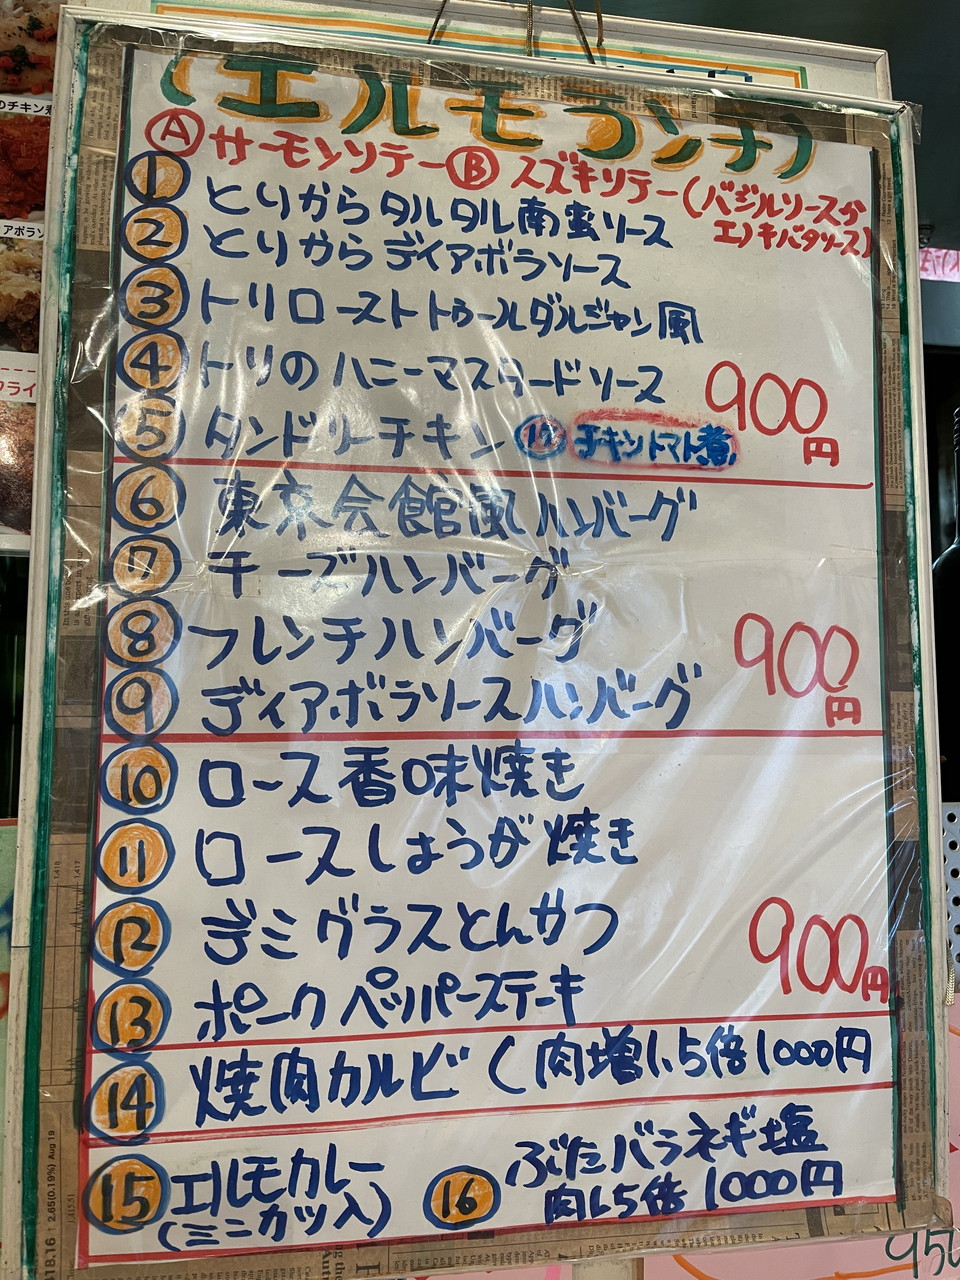 (エルモランチ)
ⒶサーモンソテーⒷスズキソテー(バジルソースか
エノキバタソース)
①とりからタルタル南蛮ソース
②とりからディアボラソース
③トリローストトゥールダルジャン風
④トリのハニーマスタードソース 900
⑤タンドリーチキン ⑰チキントマト煮 円
⑥東京会館風ハンバーグ
⑦チーズハンバーグ
⑧フレンチハンバーグ 900
⑨ディアボラソースハンバーグ 円
⑩ロース香味焼き
⑪ロースしょうが焼き
⑫デミグラスとんかつ 900円
⑬ポークペッパーステーキ
⑭焼肉カルビ(肉増1.5倍1000円
⑮エルモカレー ⑯ぶたバラネギ塩
(ミニカツ入) 肉1.5倍1000円
のチキン煮
アボラソ
フライ
18.16 2.65(0.19%) Aug 19
950